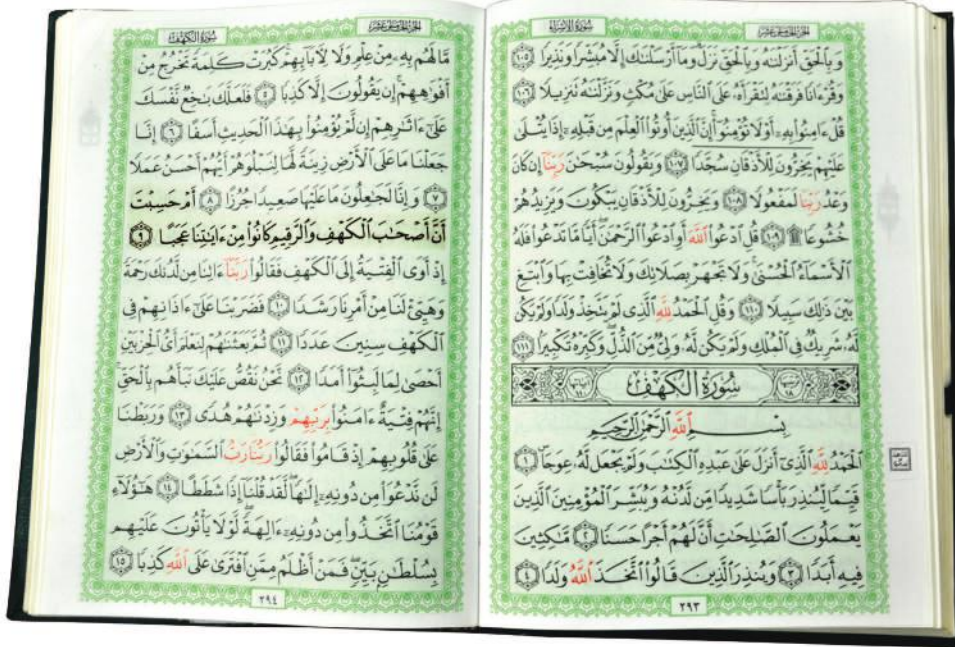 الجزء الخامس عشر
سورة الإسراء
وَبِٱلْحَقِّ أَنزَلْنَٰهُ وَبِٱلْحَقِّ نَزَلَ وَمَآ أَرْسَلْنَٰكَ إِلَّا مُبَشِّرًا وَنَذِيرًا ۝١٠٥
وَقُرْءَانًا فَرَقْنَٰهُ لِتَقْرَأَهُۥ عَلَى ٱلنَّاسِ عَلَىٰ مُكْثٍ وَنَزَّلْنَٰهُ تَنزِيلًا ۝١٠٦
قُلْ ءَامِنُوا۟ بِهِۦٓ أَوْ لَا تُؤْمِنُوٓا۟ إِنَّ ٱلَّذِينَ أُوتُوا۟ ٱلْعِلْمَ مِن قَبْلِهِۦٓ إِذَا يُتْلَىٰ
عَلَيْهِمْ يَخِرُّونَ لِلْأَذْقَانِ سُجَّدًا ۝١٠٧ وَيَقُولُونَ سُبْحَٰنَ رَبِّنَآ إِن كَانَ
وَعْدُ رَبِّنَا لَمَفْعُولًا ۝١٠٨ وَيَخِرُّونَ لِلْأَذْقَانِ يَبْكُونَ وَيَزِيدُهُمْ
خُشُوعًا ۩ ۝١٠٩ قُلِ ٱدْعُوا۟ ٱللَّهَ أَوِ ٱدْعُوا۟ ٱلرَّحْمَٰنَ أَيًّا مَّا تَدْعُوا۟ فَلَهُ
ٱلْأَسْمَآءُ ٱلْحُسْنَىٰ وَلَا تَجْهَرْ بِصَلَاتِكَ وَلَا تُخَافِتْ بِهَا وَٱبْتَغِ
بَيْنَ ذَٰلِكَ سَبِيلًا ۝١١٠ وَقُلِ ٱلْحَمْدُ لِلَّهِ ٱلَّذِى لَمْ يَتَّخِذْ وَلَدًا وَلَمْ يَكُن
لَّهُۥ شَرِيكٌ فِى ٱلْمُلْكِ وَلَمْ يَكُن لَّهُۥ وَلِىٌّ مِّنَ ٱلذُّلِّ وَكَبِّرْهُ تَكْبِيرًا ۝١١١
سُورَةُ الكَهْفِ
بِسْمِ ٱللَّهِ ٱلرَّحْمَٰنِ ٱلرَّحِيمِ
ٱلْحَمْدُ لِلَّهِ ٱلَّذِىٓ أَنزَلَ عَلَىٰ عَبْدِهِ ٱلْكِتَٰبَ وَلَمْ يَجْعَل لَّهُۥ عِوَجَا ۝١
قَيِّمًا لِّيُنذِرَ بَأْسًا شَدِيدًا مِّن لَّدُنْهُ وَيُبَشِّرَ ٱلْمُؤْمِنِينَ ٱلَّذِينَ
يَعْمَلُونَ ٱلصَّٰلِحَٰتِ أَنَّ لَهُمْ أَجْرًا حَسَنًا ۝٢ مَّٰكِثِينَ
فِيهِ أَبَدًا ۝٣ وَيُنذِرَ ٱلَّذِينَ قَالُوا۟ ٱتَّخَذَ ٱللَّهُ وَلَدًا ۝٤
٢٩٣
الجزء الخامس عشر
سورة الكهف
مَّا لَهُم بِهِۦ مِنْ عِلْمٍ وَلَا لِـَٔابَآئِهِمْ كَبُرَتْ كَلِمَةً تَخْرُجُ مِنْ
أَفْوَٰهِهِمْ إِن يَقُولُونَ إِلَّا كَذِبًا ۝٥ فَلَعَلَّكَ بَٰخِعٌ نَّفْسَكَ
عَلَىٰٓ ءَاثَٰرِهِمْ إِن لَّمْ يُؤْمِنُوا۟ بِهَٰذَا ٱلْحَدِيثِ أَسَفًا ۝٦ إِنَّا
جَعَلْنَا مَا عَلَى ٱلْأَرْضِ زِينَةً لَّهَا لِنَبْلُوَهُمْ أَيُّهُمْ أَحْسَنُ عَمَلًا
۝٧ وَإِنَّا لَجَٰعِلُونَ مَا عَلَيْهَا صَعِيدًا جُرُزًا ۝٨ أَمْ حَسِبْتَ
أَنَّ أَصْحَٰبَ ٱلْكَهْفِ وَٱلرَّقِيمِ كَانُوا۟ مِنْ ءَايَٰتِنَا عَجَبًا ۝٩
إِذْ أَوَى ٱلْفِتْيَةُ إِلَى ٱلْكَهْفِ فَقَالُوا۟ رَبَّنَآ ءَاتِنَا مِن لَّدُنكَ رَحْمَةً
وَهَيِّئْ لَنَا مِنْ أَمْرِنَا رَشَدًا ۝١٠ فَضَرَبْنَا عَلَىٰٓ ءَاذَانِهِمْ فِى
ٱلْكَهْفِ سِنِينَ عَدَدًا ۝١١ ثُمَّ بَعَثْنَٰهُمْ لِنَعْلَمَ أَىُّ ٱلْحِزْبَيْنِ
أَحْصَىٰ لِمَا لَبِثُوٓا۟ أَمَدًا ۝١٢ نَّحْنُ نَقُصُّ عَلَيْكَ نَبَأَهُم بِٱلْحَقِّ
إِنَّهُمْ فِتْيَةٌ ءَامَنُوا۟ بِرَبِّهِمْ وَزِدْنَٰهُمْ هُدًى ۝١٣ وَرَبَطْنَا
عَلَىٰ قُلُوبِهِمْ إِذْ قَامُوا۟ فَقَالُوا۟ رَبُّنَا رَبُّ ٱلسَّمَٰوَٰتِ وَٱلْأَرْضِ
لَن نَّدْعُوَا۟ مِن دُونِهِۦٓ إِلَٰهًا لَّقَدْ قُلْنَآ إِذًا شَطَطًا ۝١٤ هَٰٓؤُلَآءِ
قَوْمُنَا ٱتَّخَذُوا۟ مِن دُونِهِۦٓ ءَالِهَةً لَّوْلَا يَأْتُونَ عَلَيْهِم
بِسُلْطَٰنٍۭ بَيِّنٍ فَمَنْ أَظْلَمُ مِمَّنِ ٱفْتَرَىٰ عَلَى ٱللَّهِ كَذِبًا ۝١٥
٢٩٤